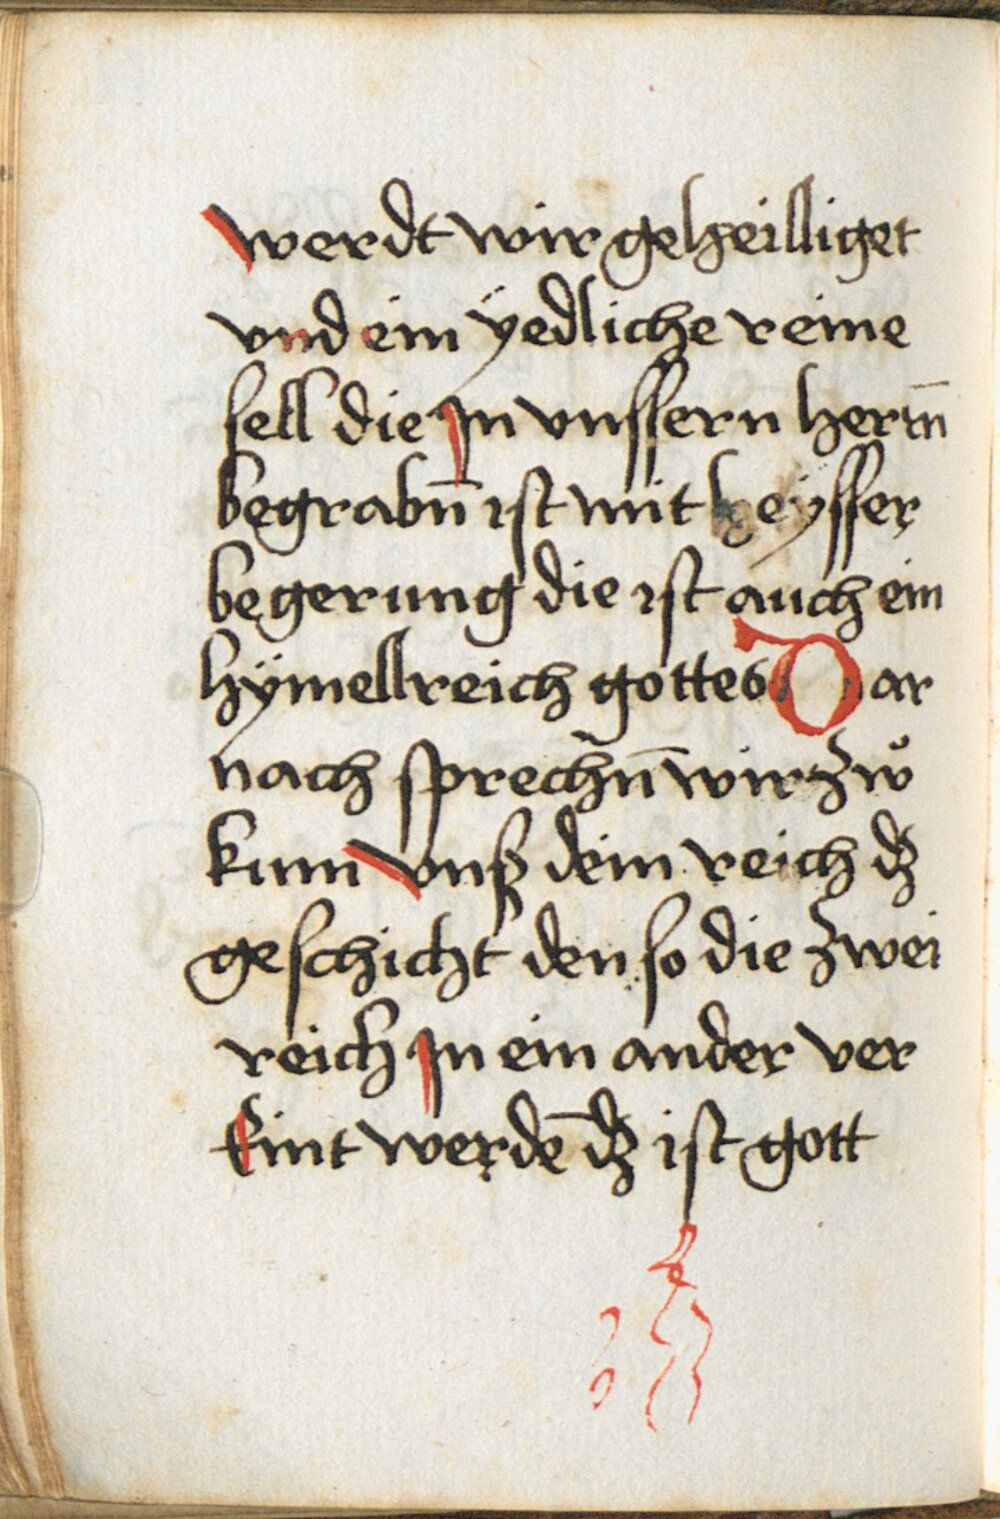 werdt wir geheilliget
vnd ein ÿedliche reine
sell die Jn vnssern herrn̄
begrabn̄ ist mit keÿsser
begerung die ist auch ein
hÿmellreich gottes Dar
nach sprechn̄ wir Zwͦ
kum vnß dein reich dʒ
geschicht den so die Zwei
reich Jn ein ander ver
Eint werdē dʒ ist gott